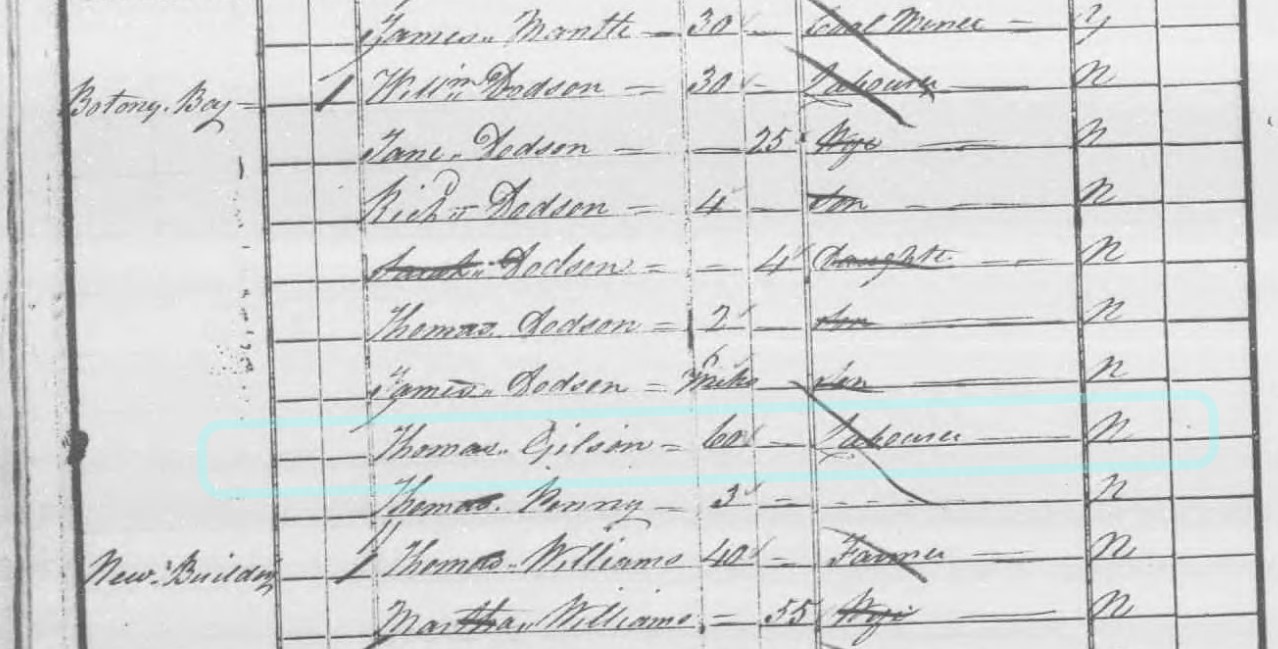 James Mantle 30 Coal Miner Y
Botony Bay 1 Willm Dodson 30 Labourer N
Jane Dodson 25 Wife N
Richd Dodson 4 Son N
Sarah Dodson 4 Daughtr N
Thomas Dodson 2 Son N
James Dodson Son N
Thomas Gilson 60 Labourer N
Thomas Penny 3 N
New Building 1 Thomas Williams 40 Farmer N
Martha Williams 55 Wife N